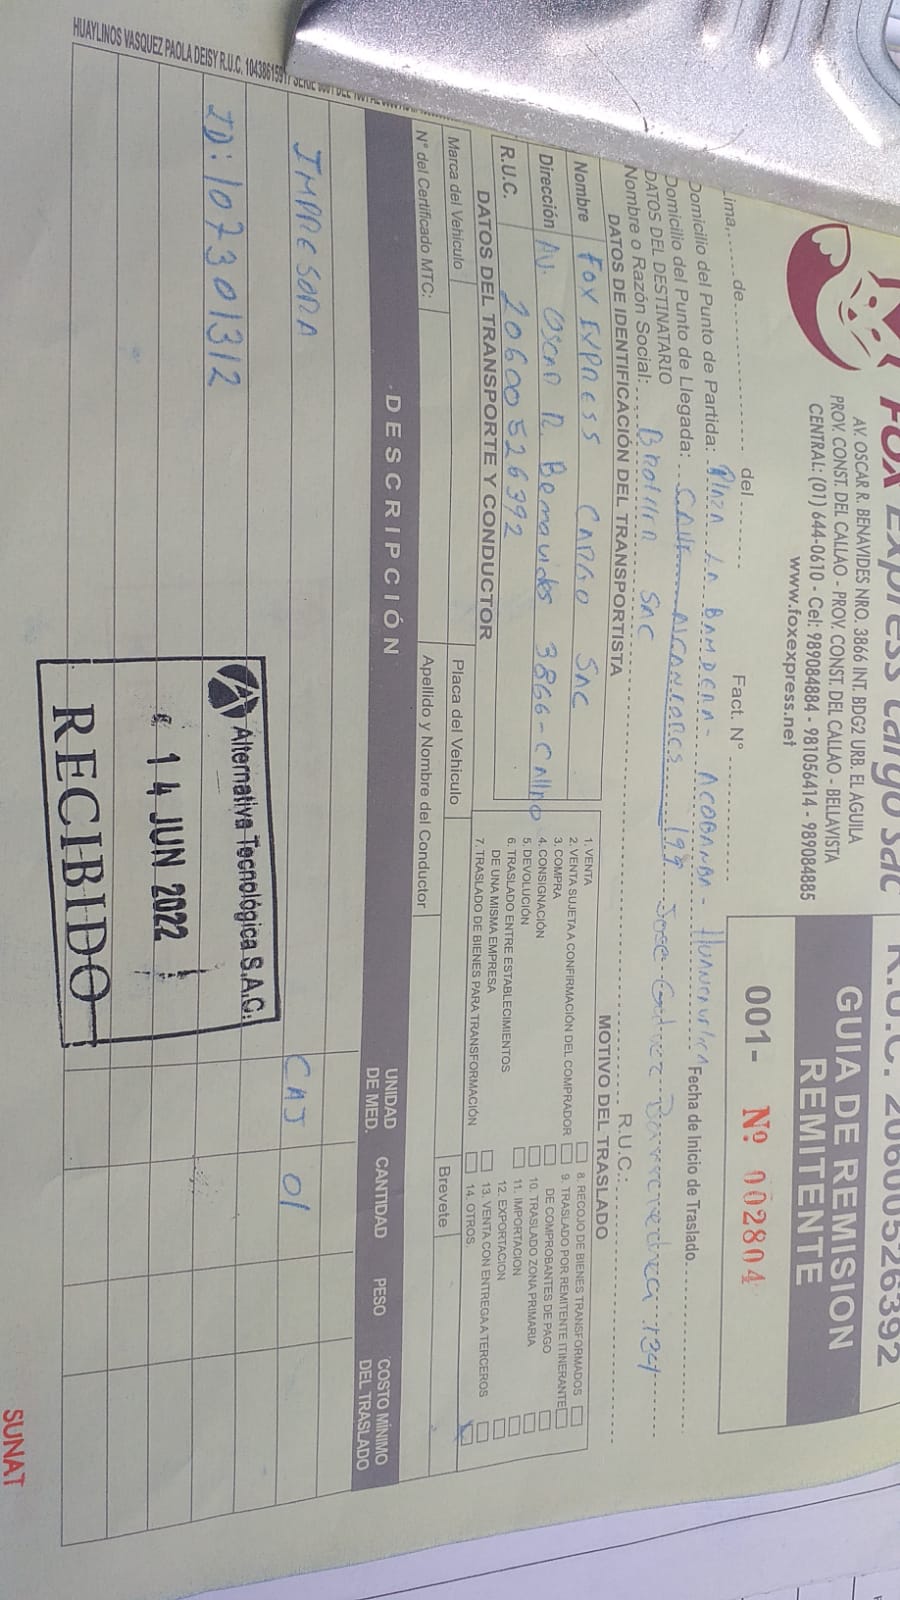 Fox Express Cargo Sac
AV. OSCAR R. BENAVIDES NRO. 3866 INT. BDG2 URB. EL AGUILA
PROV. CONST. DEL CALLAO - PROV. CONST. DEL CALLAO - BELLAVISTA
CENTRAL: (01) 644-0610 - Cel: 989084884 - 981056414 - 989084885
www.foxexpress.net
R.U.C. 20600526392
GUIA DE REMISION
REMITENTE
001- Nº 002804
Lima, de del Fact. N°
Domicilio del Punto de Partida: PLAZA LA BANDERA - ACOBAMBA - HUANCAVELICA Fecha de Inicio de Traslado
Domicilio del Punto de Llegada: 199 134
DATOS DEL DESTINATARIO
Nombre o Razón Social: SAC R.U.C.:
DATOS DE IDENTIFICACIÓN DEL TRANSPORTISTA
Nombre FOX EXPRESS CARGO SAC
Dirección AV. OSCAR R. Benavides 3866 - CALLAO
R.U.C. 20600526392
MOTIVO DEL TRASLADO
1. VENTA
2. VENTA SUJETA A CONFIRMACIÓN DEL COMPRADOR
3. COMPRA
4. CONSIGNACIÓN
5 DEVOLUCIÓN
6. TRASLADO ENTRE ESTABLECIMIENTOS
DE UNA MISMA EMPRESA
7. TRASLADO DE BIENES PARA TRANSFORMACIÓN
8. RECOJO DE BIENES TRANSFORMADOS
9. TRASLADO POR REMITENTE ITINERANTE
DE COMPROBANTES DE PAGO
10. TRASLADO ZONA PRIMARIA
11. IMPORTACION
12. EXPORTACION
13. VENTA CON ENTREGA A TERCEROS
14. OTROS
DATOS DEL TRANSPORTE Y CONDUCTOR
Marca del Vehiculo Placa del Vehiculo
N° del Certificado MTC: Apellido y Nombre del Conductor Brevete
DESCRIPCIÓN UNIDAD DE MED. CANTIDAD PESO COSTO MÍNIMO DEL TRASLADO
IMPRESORA CAJ 01
ID: 107301312
Alternativa Tecnológica S.A.C.
14 JUN 2022
RECIBIDO
HUAYLINOS VASQUEZ PAOLA DEISY R.U.C.
SUNAT